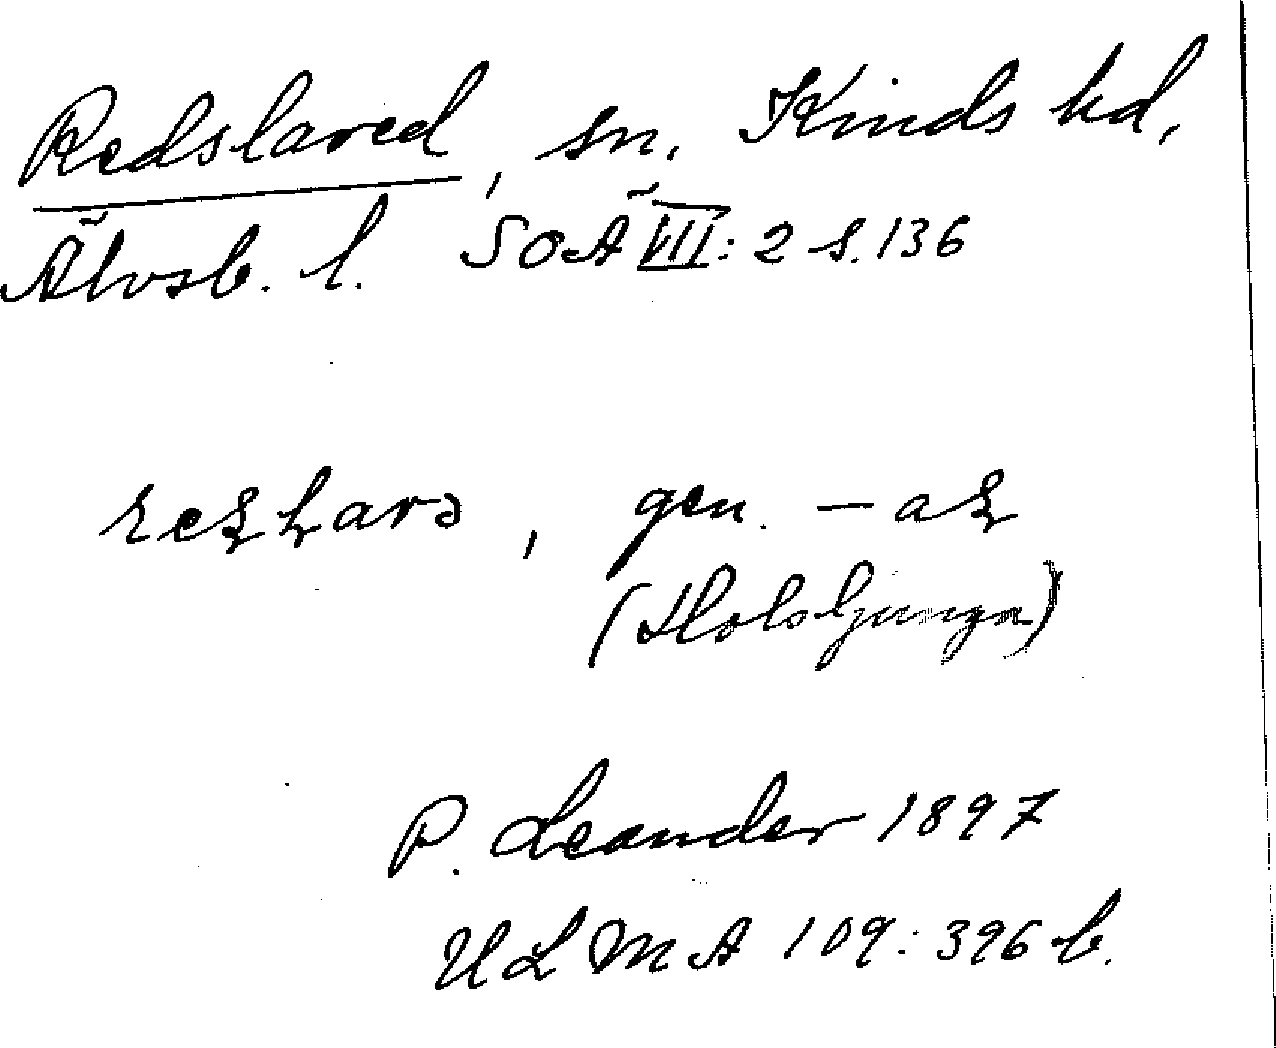 Redslared, sn. Kinds hd,
Älvsb. l. SOÄ VII: 2 s. 136
gen. –
(Holsljunga)
P. Leander 1897
ULMA 109: 396 b.